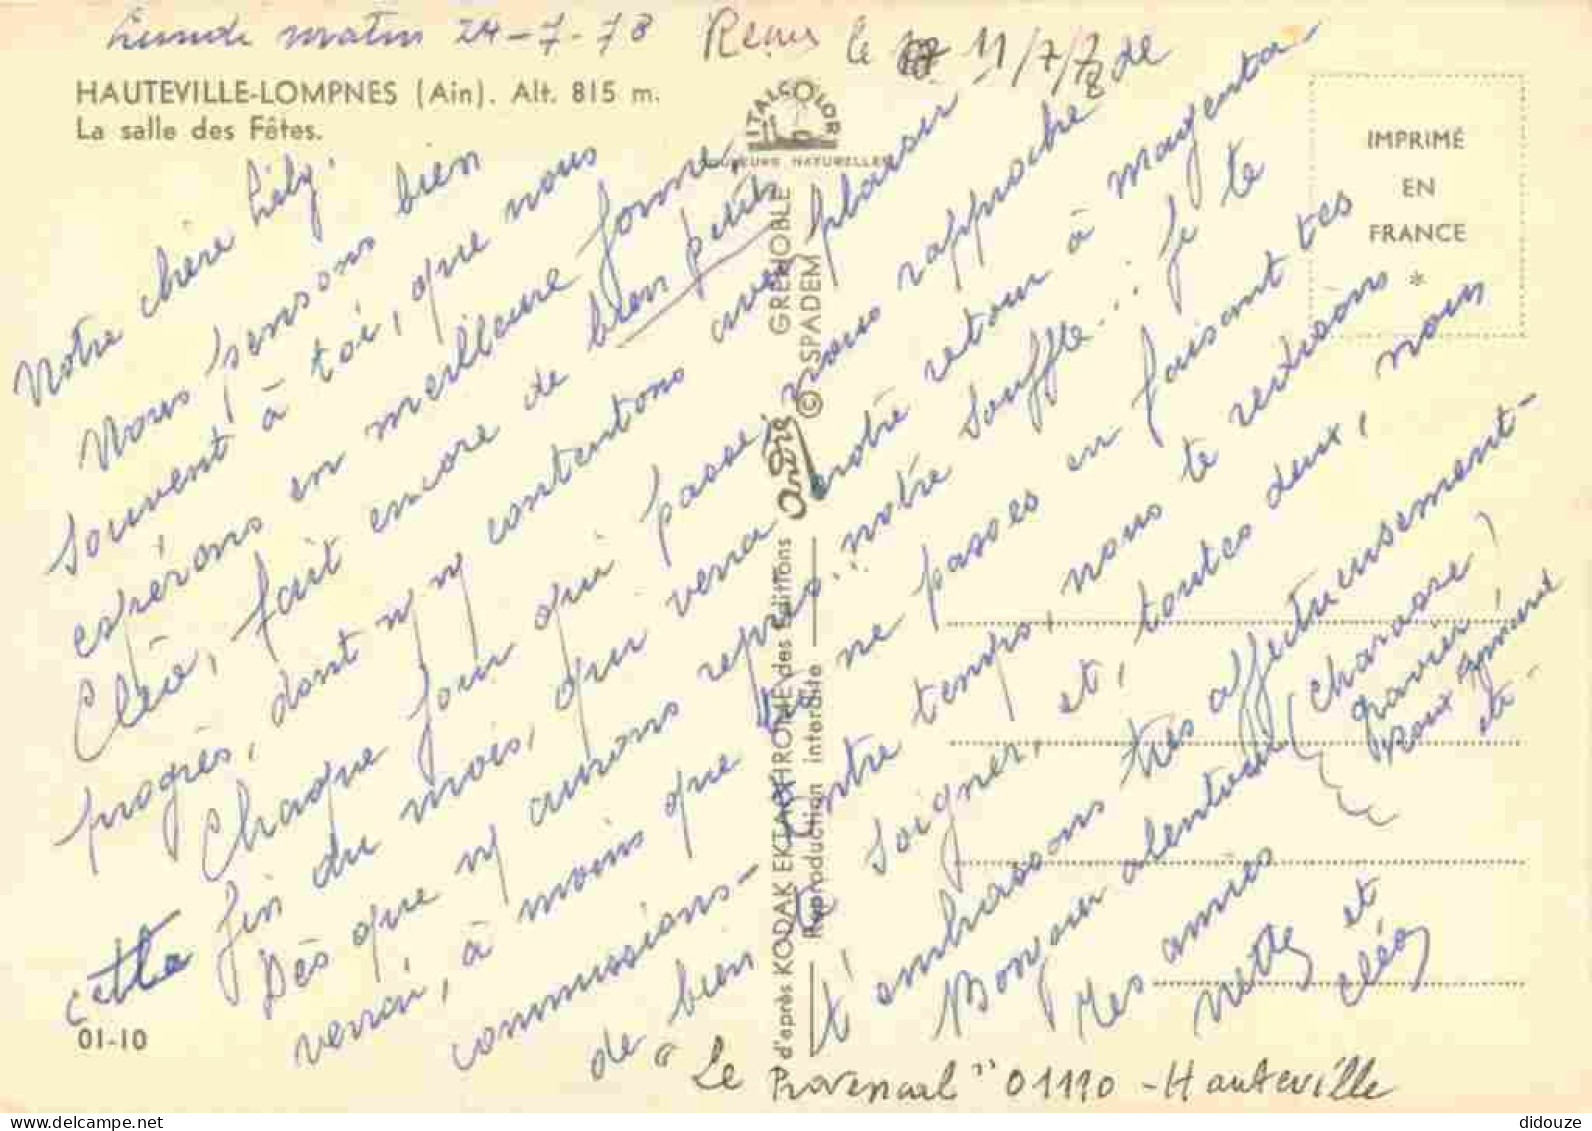 Lundi matin 24-7-78 Reçu le 11/7/78
HAUTEVILLE-LOMPNES (Ain). Alt. 815 m.
La salle des Fêtes.
ITALCOLOR
COULEURS NATURELLES
IMPRIMÉ
EN
FRANCE
*
Notre chère Lély.
Nous pensons bien
souvent à toi, que nous
espérons en meilleure forme,
Cléo, fait encore de bien petits
progrès, dont n/ n/ contentons avec plaisir
Chaque jour qui passe, nous rapproche de
cette fin du mois, qui verra notre retour à Magenta-
Dès que n/ aurons repris... notre souffle... je te
verrai, à moins que tu ne passes en faisant tes
commissions- Entre temps, nous te redisons
de bien te soigner, et, toutes deux, nous
t'embrassons très affectueusement-
Bonjour alentour (Charasse)
Tes amies gravier!
Netty et Roux Aymé
Cléo etc-
d'après KODAK EKTACHROME des Editions André GRENOBLE
Reproduction interdite © SPADEM
01-10
"Le Provençal" 01110 - Hauteville
didouze